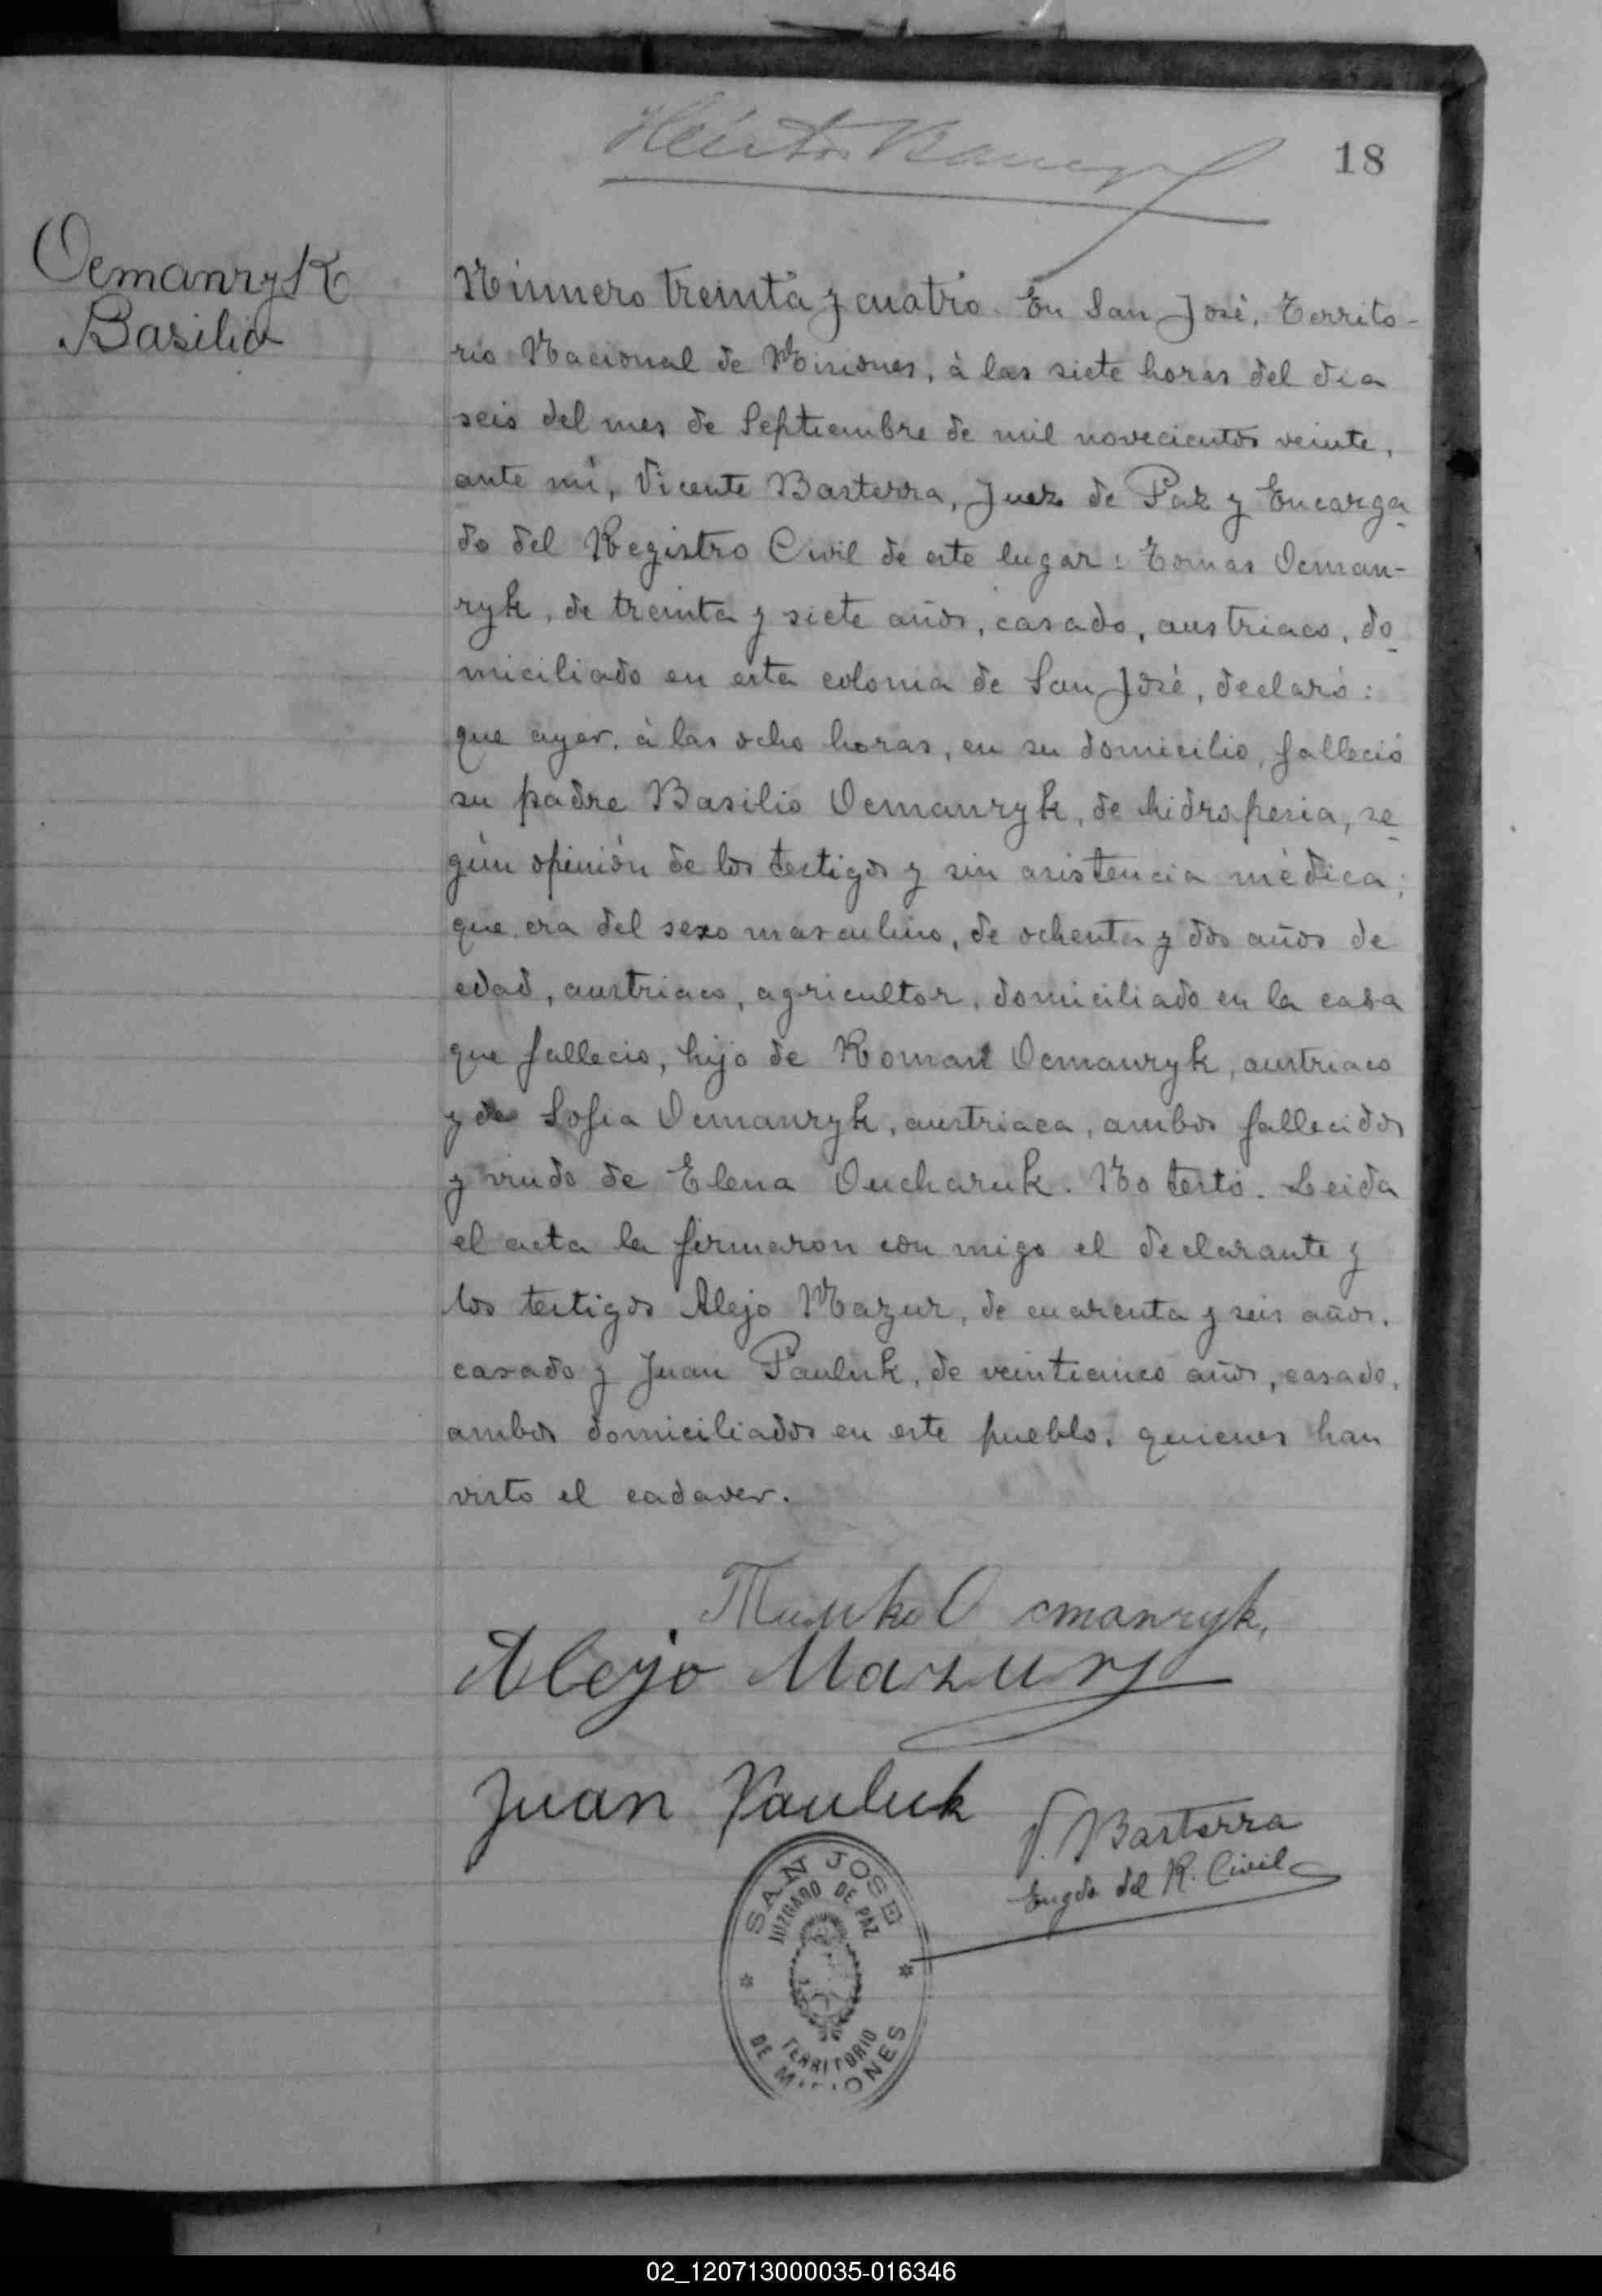 18
Ocmanryk
Basilio
Número treinta y cuatro. En San José, Territo-
rio Nacional de Misiones, à las siete horas del dia
seis del mes de Septiembre de mil novecientos veinte,
ante mi, Vicente Basterra, Juez de Paz y Encarga-
do del Registro Civil de este lugar: Tomas Ocman-
ryk, de treinta y siete años, casado, austriaco, do-
miciliado en esta colonia de San José, declaró:
que ayer, à las ocho horas, en su domicilio, falleció
su padre Basilio Ocmanryk, de hidropesia, se-
gún opinión de los testigos y sin asistencia mèdica;
que era del sexo masculino, de ochenta y dos años de
edad, austriaco, agricultor, domiciliado en la casa
que fallecio, hijo de Roman Ocmanryk, austriaco
y de Sofia Ocmanryk, austriaca, ambos fallecidos
y viudo de Elena Oucharuk. No testó. Leida
el acta la firmaron con migo el declarante y
los testigos Alejo Mazur, de cuarenta y seis años,
casado y Juan Pauluk, de veinticinco años, casado,
ambos domiciliados en este pueblo, quienes han
visto el cadaver.
Ocmanryk,
Alejo Mazur
Juan Pauluk
V. Basterra
Engdo del R. Civil
SAN JOSE
JUZGADO DE PAZ
TERRITORIO
DE MISIONES
02_120713000035-016346